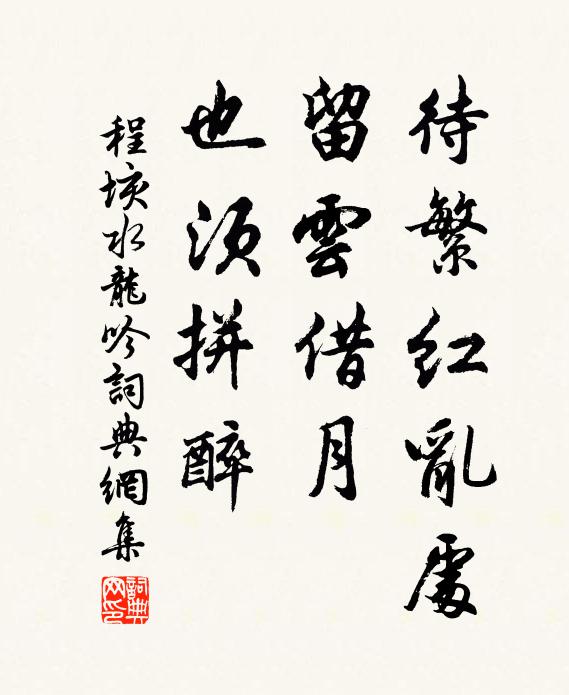 待繁紅亂處
留雲借月
也須拼醉
程垓水龍吟詞典網集
詞典
网印